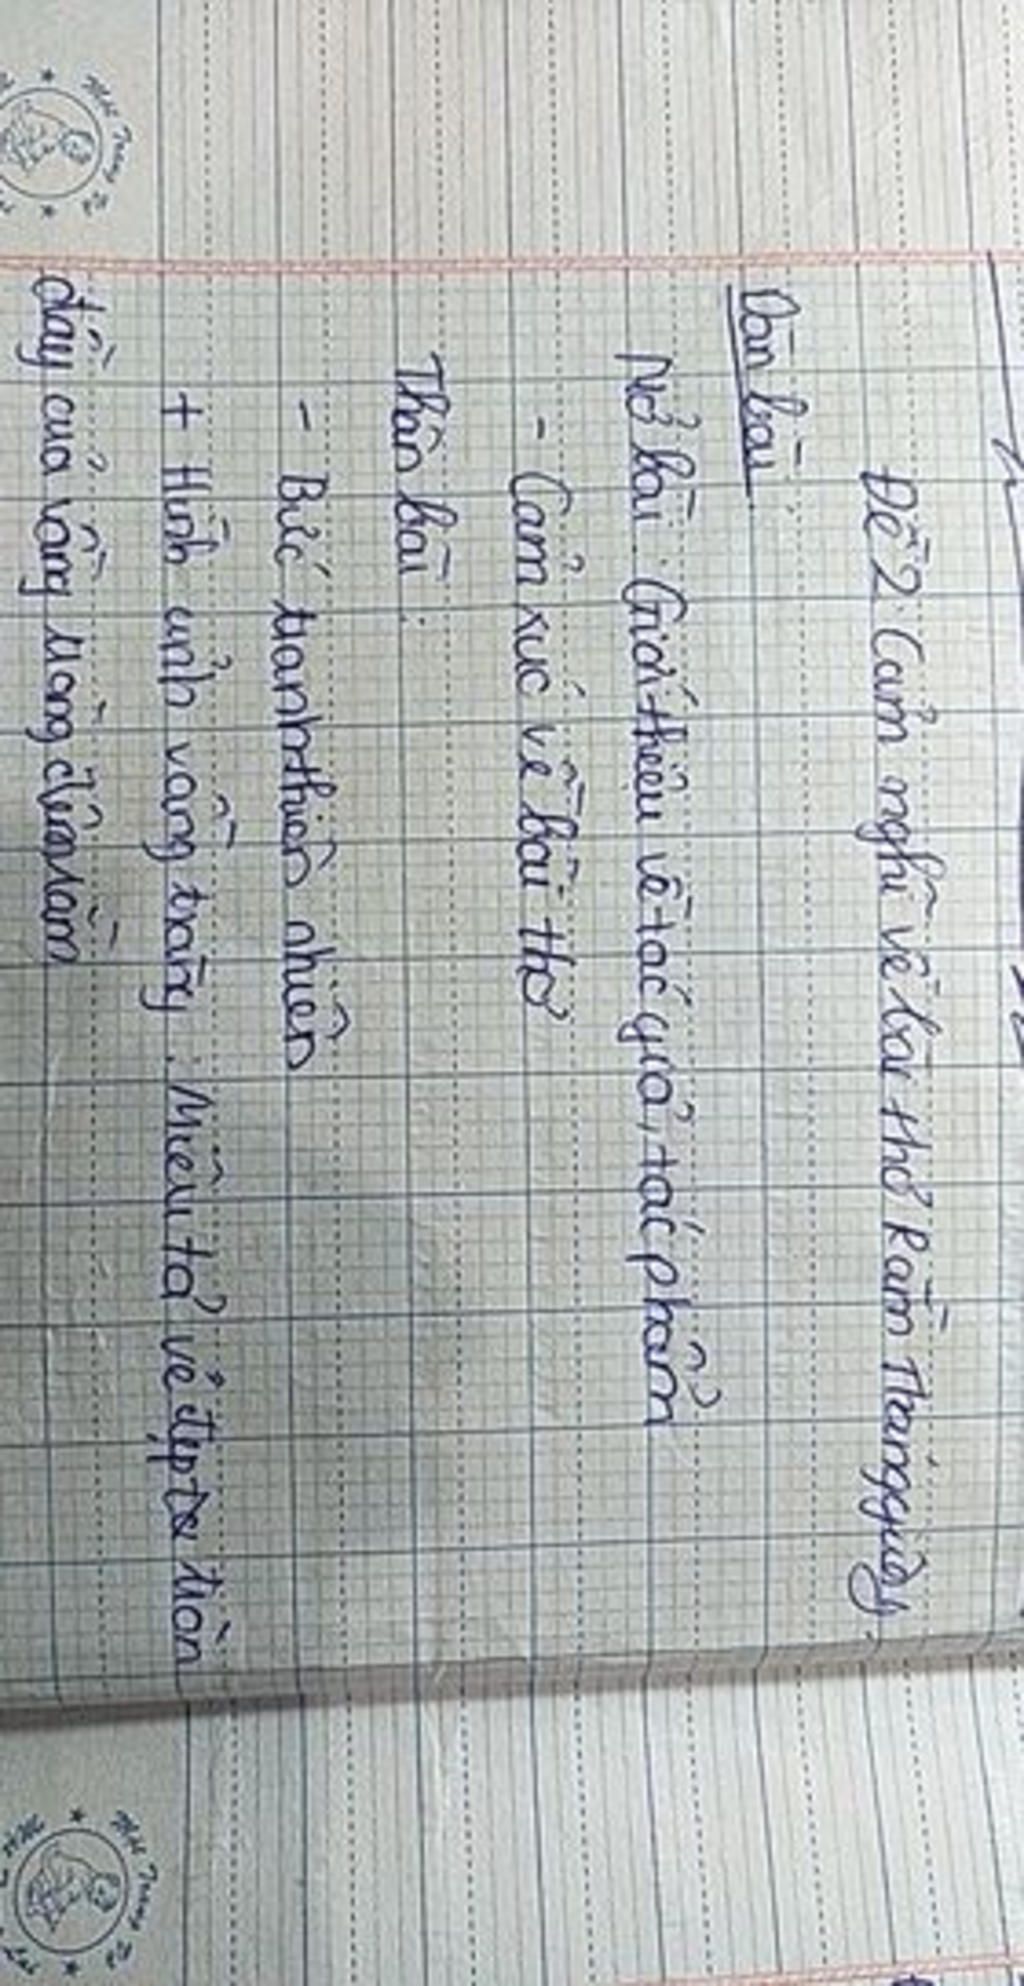 Đề 2: Cảm nghĩ về bài thơ Rằm Tháng giêng.
Dàn bài:
Mở bài: Giới thiệu về tác giả, tác phẩm
- Cảm xúc về bài thơ
Thân bài:
- Bức tranh thiên nhiên
+ Hình ảnh vầng trăng: Miêu tả vẻ đẹp tròn
đầy của vầng trăng đêm rằm